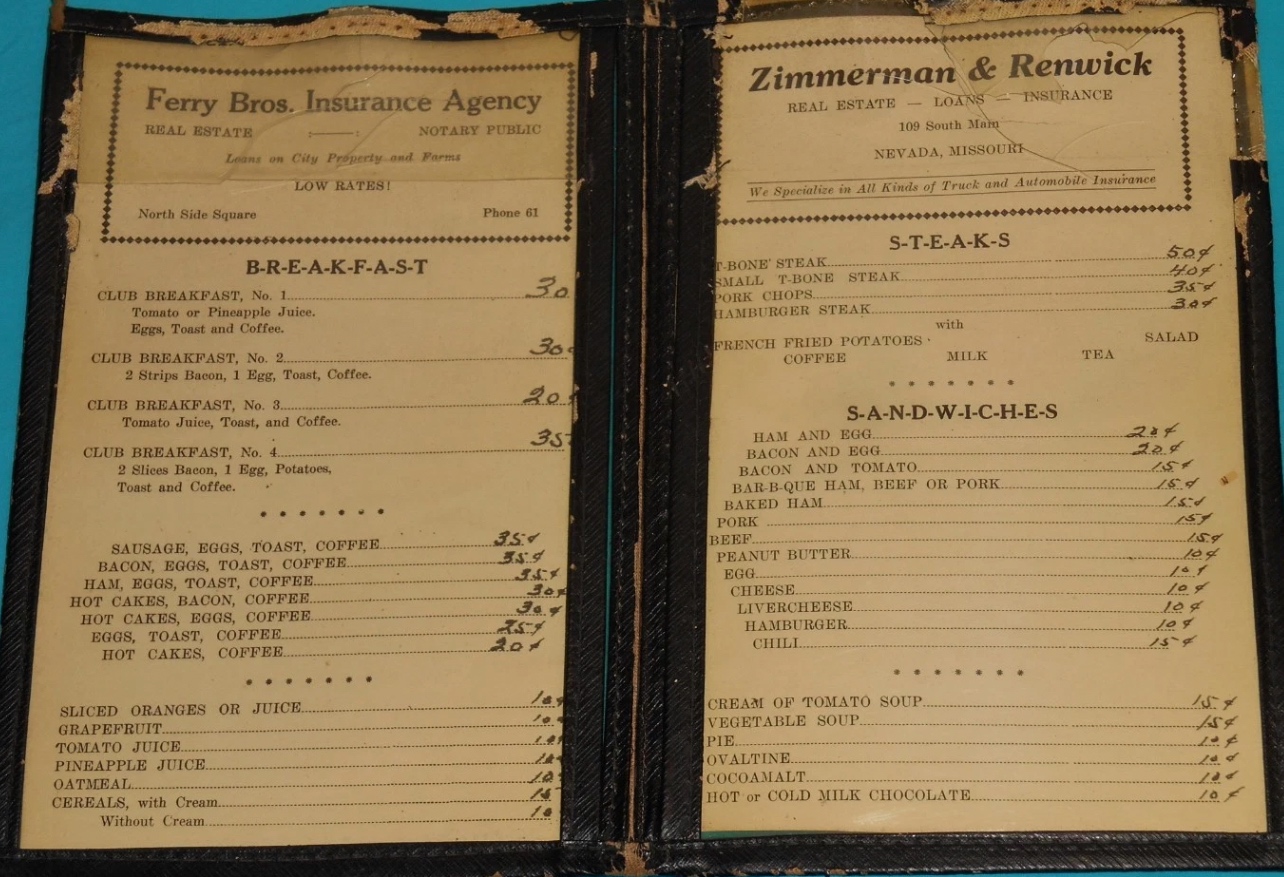 Ferry Bros. Insurance Agency
REAL ESTATE NOTARY PUBLIC
Loans on City Property and Farms
LOW RATES!
North Side Square Phone 61
B-R-E-A-K-F-A-S-T
CLUB BREAKFAST, No. 1 30
Tomato or Pineapple Juice.
Eggs, Toast and Coffee.
CLUB BREAKFAST, No. 2 30
2 Strips Bacon, 1 Egg, Toast, Coffee.
CLUB BREAKFAST, No. 3 20
Tomato Juice, Toast, and Coffee.
CLUB BREAKFAST, No. 4 35
2 Slices Bacon, 1 Egg, Potatoes,
Toast and Coffee.
* * * * * * *
SAUSAGE, EGGS, TOAST, COFFEE 35¢
BACON, EGGS, TOAST, COFFEE 35¢
HAM, EGGS, TOAST, COFFEE 35¢
HOT CAKES, BACON, COFFEE 30¢
HOT CAKES, EGGS, COFFEE 30¢
EGGS, TOAST, COFFEE 25¢
HOT CAKES, COFFEE 20¢
* * * * * * *
SLICED ORANGES OR JUICE 10¢
GRAPEFRUIT 10¢
TOMATO JUICE 10¢
PINEAPPLE JUICE 10¢
OATMEAL 10¢
CEREALS, with Cream 15
Without Cream 10
Zimmerman & Renwick
REAL ESTATE — LOANS — INSURANCE
109 South Main
NEVADA, MISSOURI
We Specialize in All Kinds of Truck and Automobile Insurance
S-T-E-A-K-S
T-BONE STEAK 50¢
SMALL T-BONE STEAK 40¢
PORK CHOPS 35¢
HAMBURGER STEAK 30¢
with
FRENCH FRIED POTATOES SALAD
COFFEE MILK TEA
* * * * * * *
S-A-N-D-W-I-C-H-E-S
HAM AND EGG 20¢
BACON AND EGG 20¢
BACON AND TOMATO 15¢
BAR-B-QUE HAM, BEEF OR PORK 15¢
BAKED HAM 15¢
PORK 15¢
BEEF 15¢
PEANUT BUTTER 10¢
EGG 10¢
CHEESE 10¢
LIVERCHEESE 10¢
HAMBURGER 10¢
CHILI 15¢
* * * * * * *
CREAM OF TOMATO SOUP 15¢
VEGETABLE SOUP 15¢
PIE 10¢
OVALTINE 10¢
COCOAMALT 10¢
HOT or COLD MILK CHOCOLATE 10¢